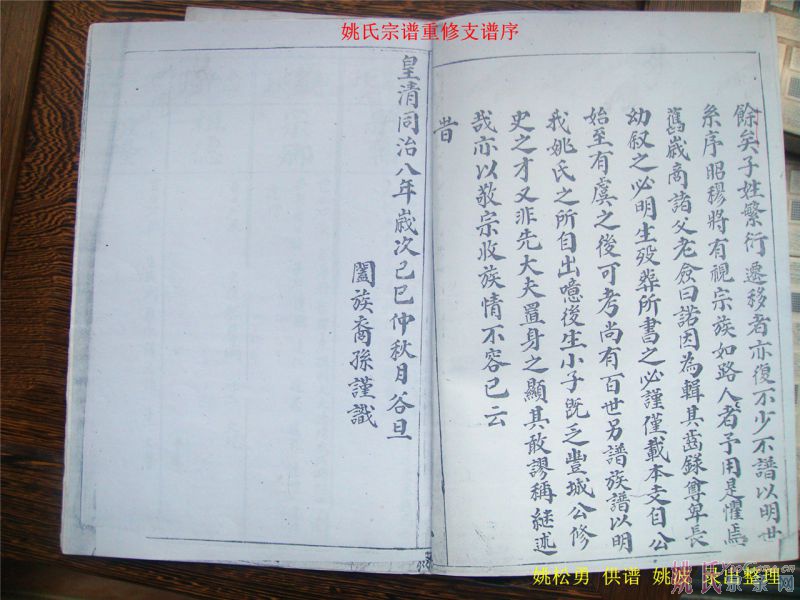 姚氏宗谱重修支谱序
餘矣子姓繁衍遷移者亦復不少不譜以明世
系序昭穆將有視宗族如路人者予用是懼焉
舊歲商諸父老僉曰諾因為輯其齒錄尊卑長
幼叙之必明生殁葬所書之必謹僅載本支自公
始至有虞之後可考尚有百世另譜族譜以明
我姚氏之所自出噫後生小子既乏豐城公修
史之才又非先大夫置身之顯其敢謬稱继述
哉亦以敬宗收族情不容已云
昔
皇清同治八年歲次己巳仲秋月谷旦
闔族裔孫謹識
姚松勇 供谱 姚波 录出整理